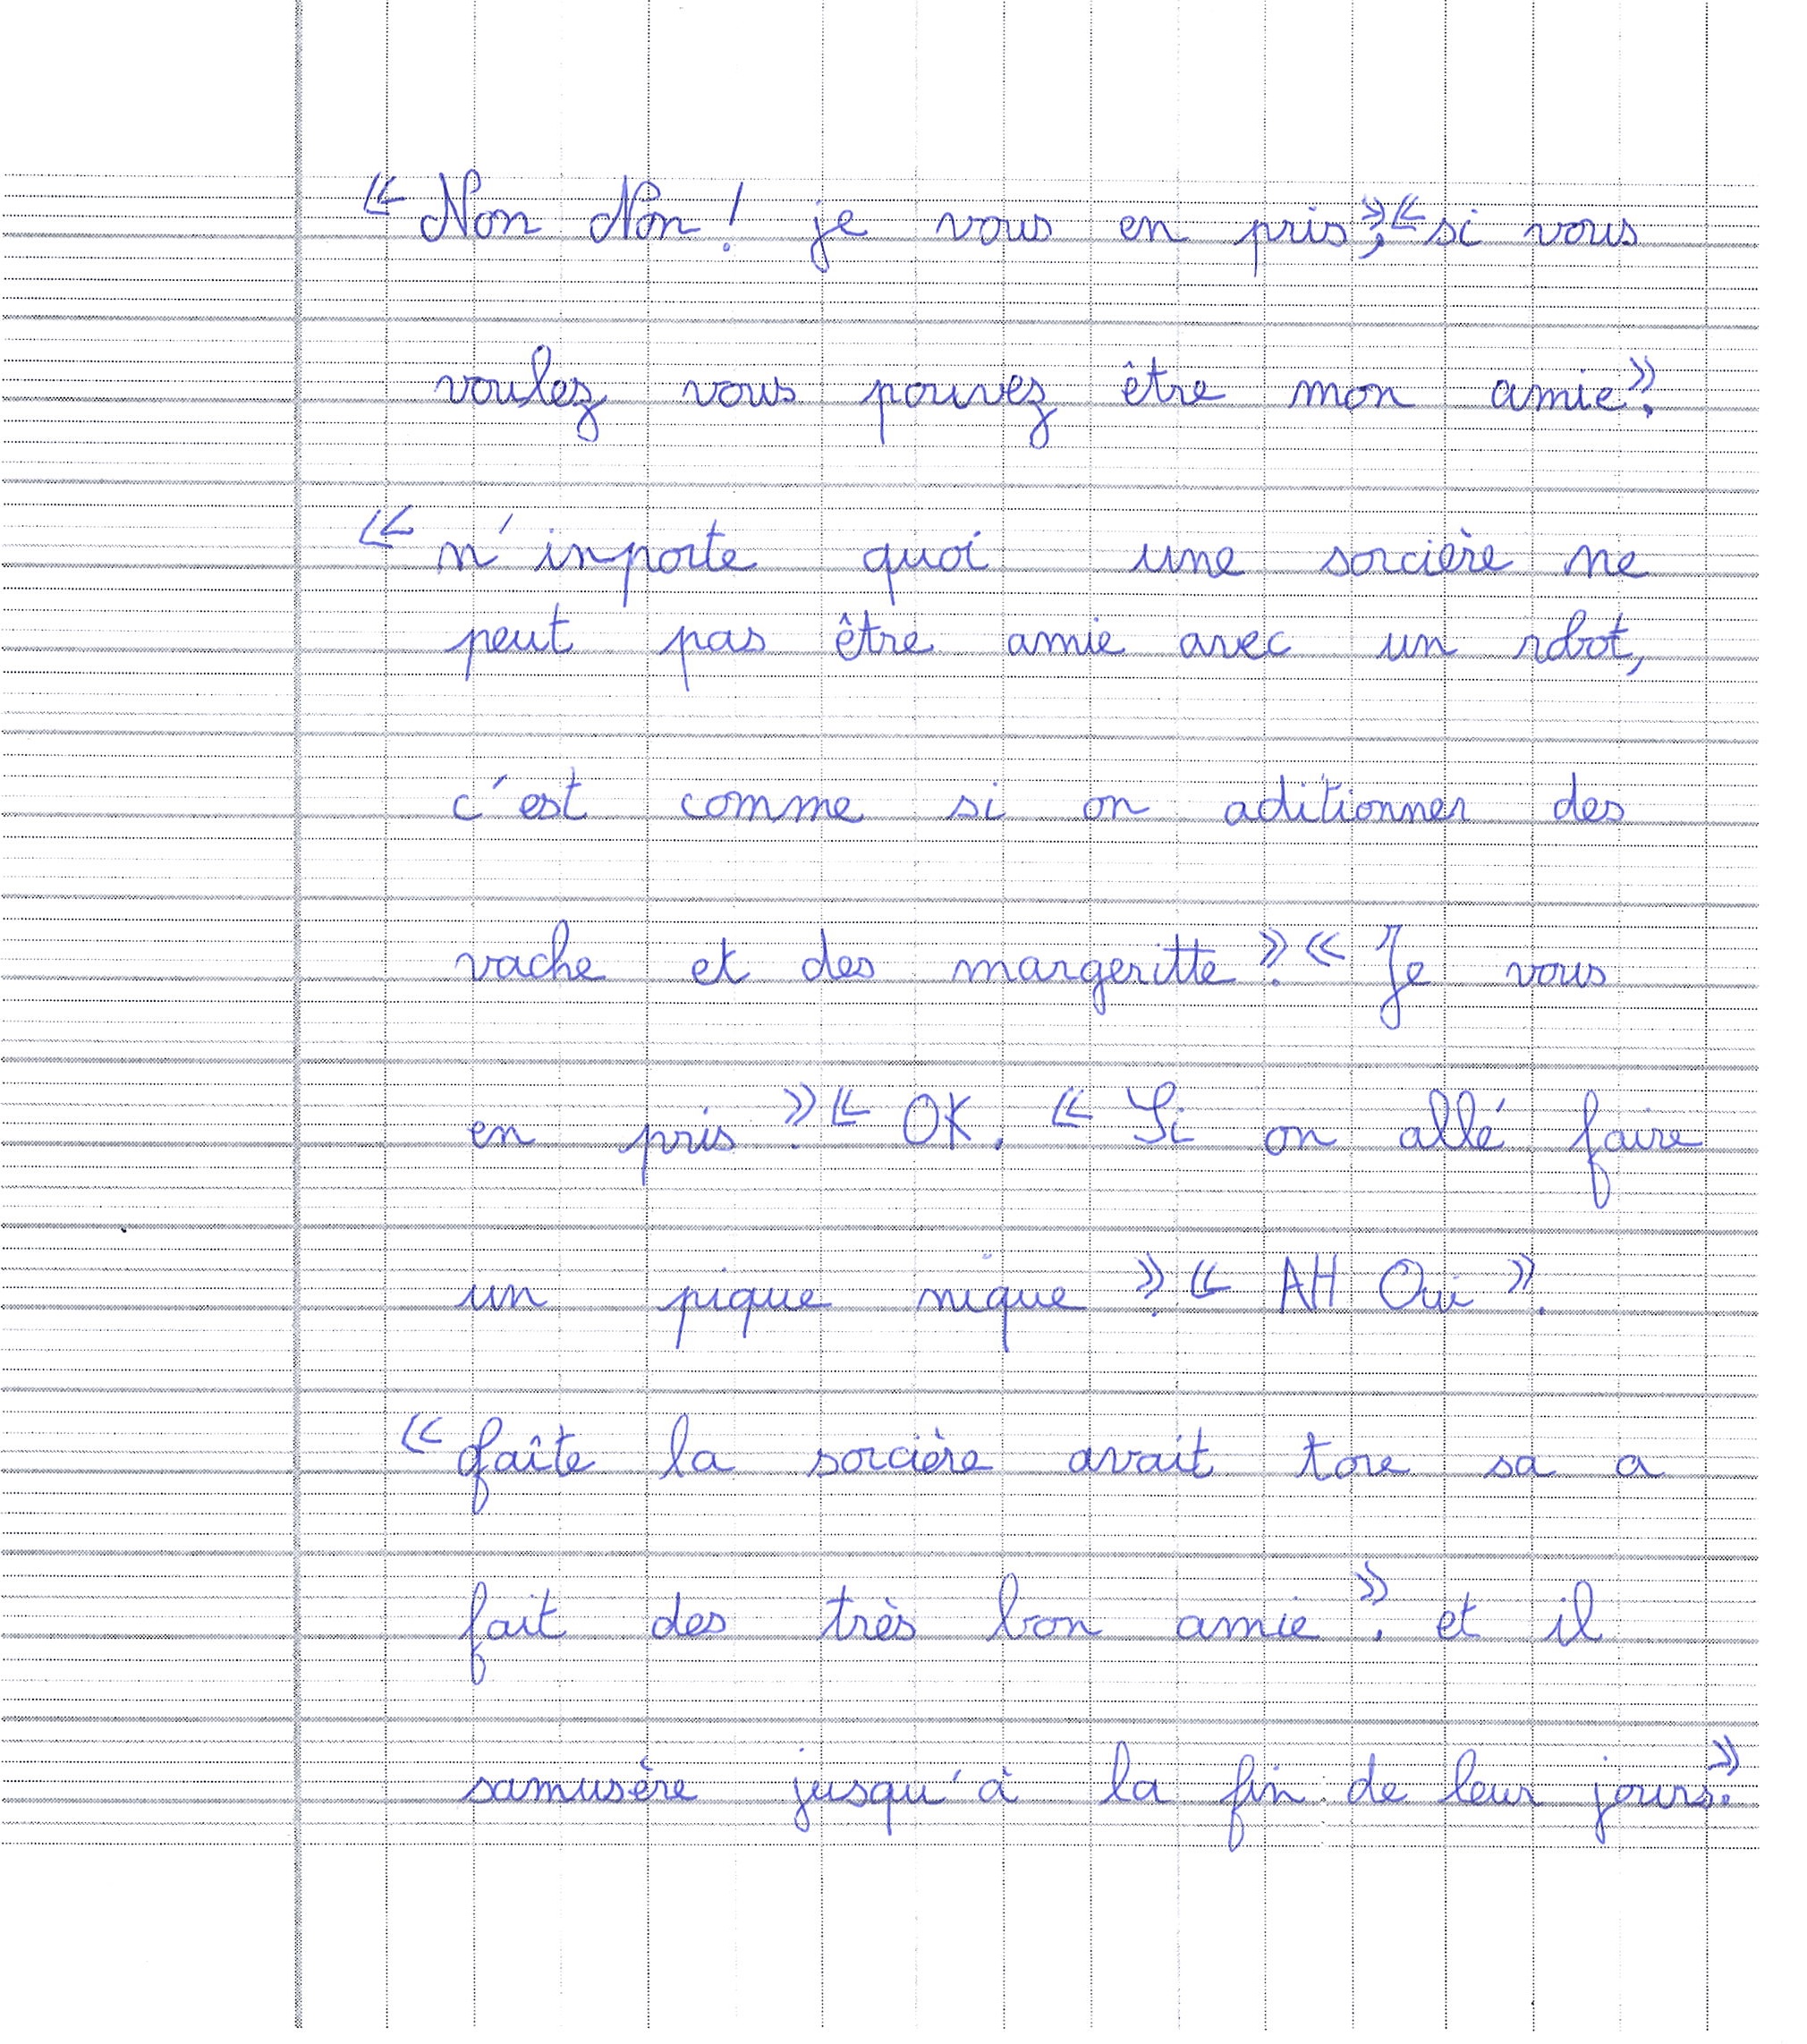 « Non Non ! je vous en pris »; « si vous
voulez vous pouvez être mon amie ».
« n'inporte quoi une sorcière ne
peut pas être amie avec un robot,
c'est comme si on aditionner des
vache et des margeritte ». « Je vous
en pris ». « OK. « Si on allé faire
un pique nique ». « AH Oui ».
« faîte la sorcière avait tore sa a
fait des très bon amie ». et il
samusère jusqu'à la fin de leur jours ».